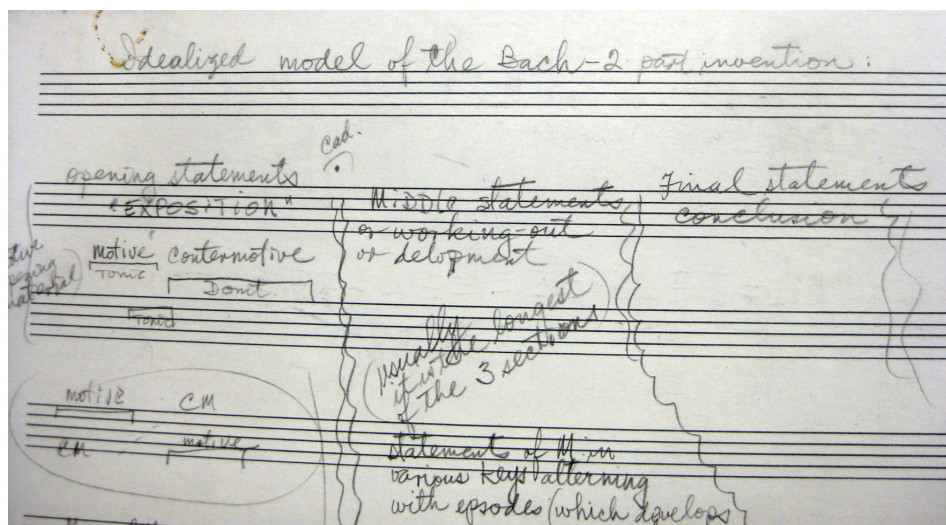 Idealized model of the Bach-2 part invention:
Cad.
opening statements
"EXPOSITION"
motive" contermotive
Tonic
Domt.
Tonic
motive CM
CM motive
MiDDle statements
or working-out
or delopment
(usually
it is the longest
of the 3 sections)
statements of M in
various keys alterning
with episodes (which develops
Final statements
conclusion"